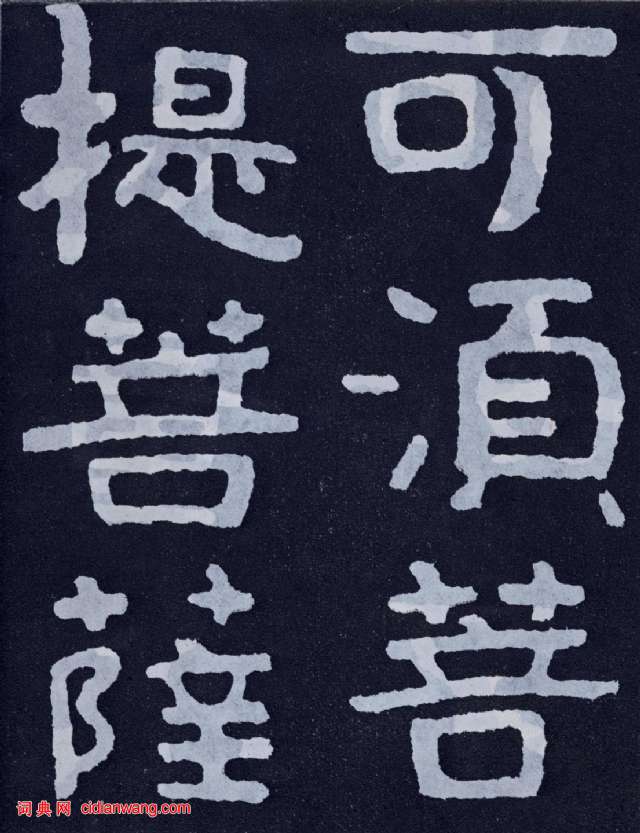 可須菩
提菩薩
词典网 cidianwang.com